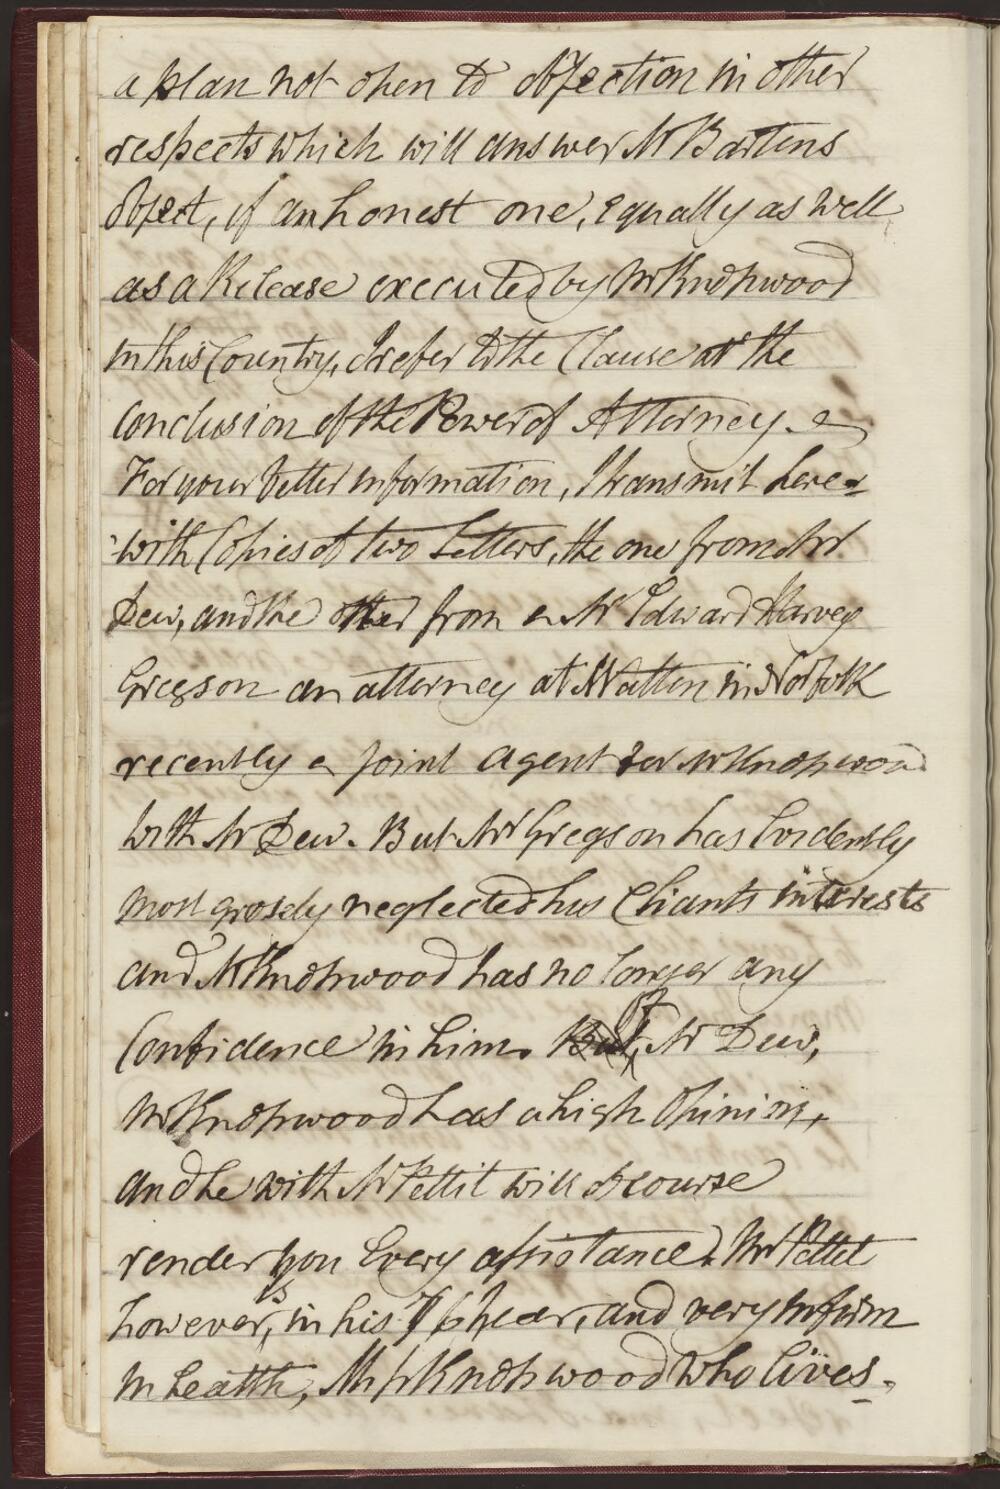 a plan not open to objection in other
respects which will answer Mr Bartens
object, if an honest one, equally as well
as a Release executed by Mr Knopwood
in this Country, I refer to the Clause at the
Conclusion of the Power of Attorney. -
For your better information, I transmit here-
-with Copies of two Letters, the one from Mr
Dew, and the other from a Mr Edward Harvey
Gregson an attorney at Watton in Norfolk
recently a joint agent for Mr Knopwood
with Mr Dew. But Mr Gregson has Evidently
most grossly neglected his Clients interests
and Mr Knopwood has no longer any
Confidence in him. But Of Mr Dew,
Mr Knopwood has a high Opinion,
and he with Mr Pettit will of course
render you Every assistance. Mr Pettet
however, is in his year, and very infirm
in health, Miss Knopwood who lives -